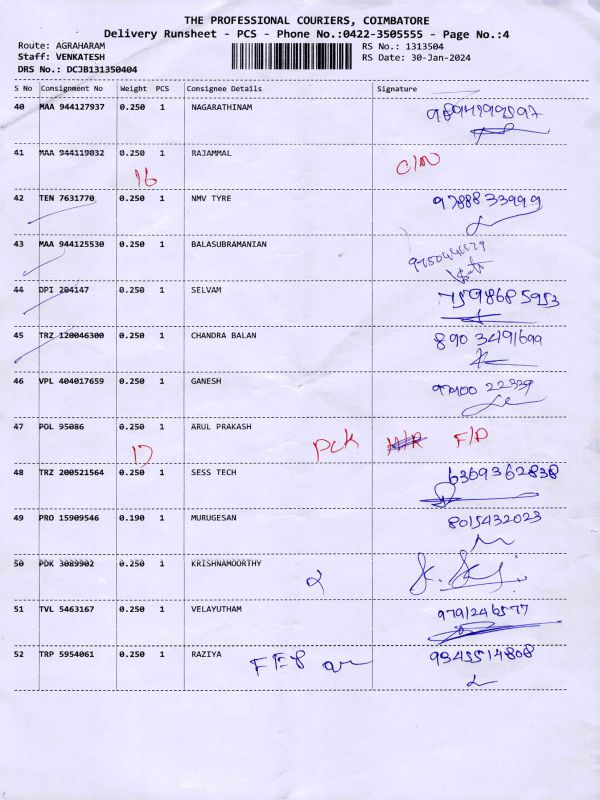 THE PROFESSIONAL COURIERS, COIMBATORE
Delivery Runsheet - PCS - Phone No.:0422-3505555 - Page No.:4
Route: AGRAHARAM RS No.: 1313504
Staff: VENKATESH RS Date: 30-Jan-2024
DRS No.: DCJB131350404
S No Consignment No Weight PCS Consignee Details Signature
40 MAA 944127937 0.250 1 NAGARATHINAM
41 MAA 944119032 0.250 1 RAJAMMAL
16
42 TEN 7631770 0.250 1 NMV TYRE 9788833999
43 MAA 944125530 0.250 1 BALASUBRAMANIAN
44 DPI 204147 0.250 1 SELVAM 7598685953
45 TRZ 120046300 0.250 1 CHANDRA BALAN 890 3491699
46 VPL 404017659 0.250 1 GANESH
47 POL 95086 0.250 1 ARUL PRAKASH
17 PCK F/D
48 TRZ 200521564 0.250 1 SESS TECH 6369362838
49 PRO 15909546 0.190 1 MURUGESAN 8015432023
50 PDK 3089902 0.250 1 KRISHNAMOORTHY
51 TVL 5463167 0.250 1 VELAYUTHAM 9791246577
52 TRP 5954061 0.250 1 RAZIYA 9345514808